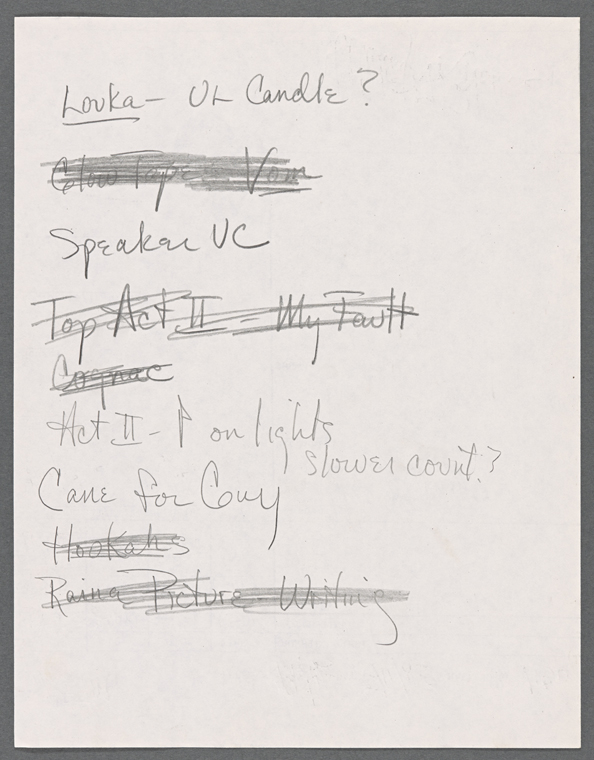 Louka - UL Candle?
Glow Tape - Vom
Speaker UC
Top Act II - My Fault
Cognac
Act II - ↑ on lights
slower count?
Cane for Guy
Hookahs
Raina Picture - Writing